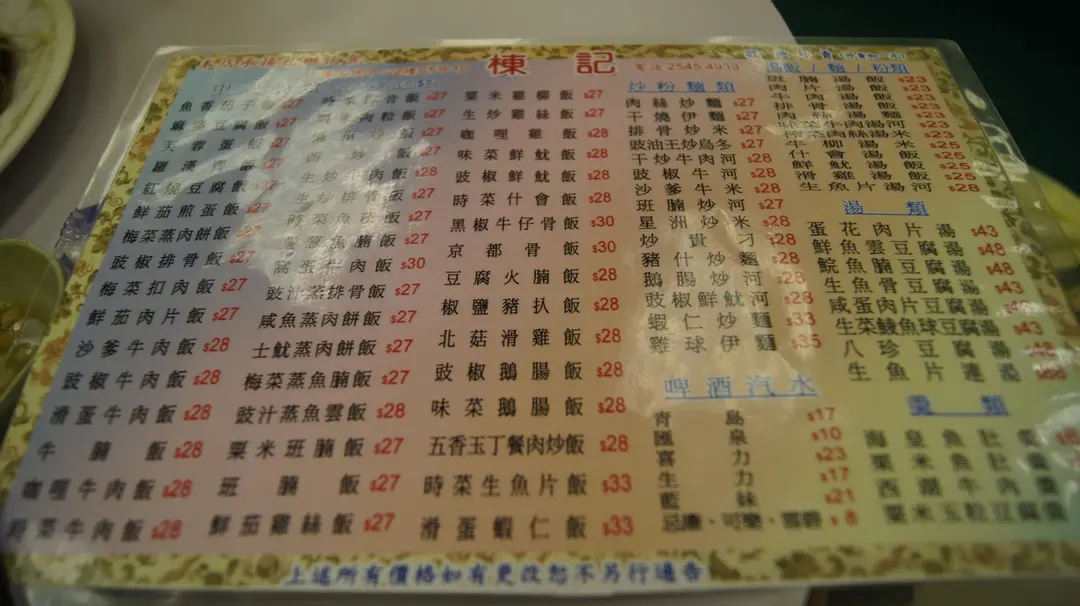 棟記
電話 2545 4919
魚香茄子飯 $27
麻婆豆腐飯 $27
芙蓉蛋飯 $27
羅漢齋飯 $27
紅燒豆腐飯 $27
鮮茄煎蛋飯 $27
梅菜蒸肉餅飯 $27
豉椒排骨飯 $27
梅菜扣肉飯 $27
鮮茄肉片飯 $27
沙爹牛肉飯 $28
豉椒牛肉飯 $28
滑蛋牛肉飯 $28
牛腩飯 $28
咖喱牛肉飯 $28
時菜牛肉飯 $28
時菜排骨飯 $27
粟米肉粒飯 $27
$27
$27
生炒牛肉飯 $28
生炒排骨飯 $27
時菜魚
魚腩飯 $27
肉飯 $30
豉汁蒸排骨飯 $27
咸魚蒸肉餅飯 $27
土魷蒸肉餅飯 $27
梅菜蒸魚腩飯 $27
豉汁蒸魚雲飯 $28
粟米班腩飯 $27
班腩飯 $27
鮮茄雞絲飯 $27
粟米雞柳飯 $27
生炒雞絲飯 $27
咖喱雞飯 $28
味菜鮮魷飯 $28
豉椒鮮魷飯 $28
時菜什會飯 $28
黑椒牛仔骨飯 $30
京都骨飯 $30
豆腐火腩飯 $28
椒鹽豬扒飯 $28
北菇滑雞飯 $28
豉椒鵝腸飯 $28
味菜鵝腸飯 $28
五香玉丁餐肉炒飯 $28
時菜生魚片飯 $33
滑蛋蝦仁飯 $33
炒粉麵類
肉絲炒麵 $27
干燒伊麵 $27
排骨炒米 $27
豉油王炒烏冬 $27
干炒牛肉河 $28
豉椒牛河 $28
沙爹牛米 $28
班腩炒河 $27
星洲炒米 $28
炒貴刁 $28
豬什炒麵 $28
鵝腸炒河 $28
豉椒鮮魷河 $28
蝦仁炒麵 $33
雞球伊麵 $35
啤酒汽水
青島 $17
匯泉 $10
喜力 $23
生力 $17
藍妹 $21
忌廉·可樂·雪碧 $8
湯飯/麵/粉類
班腩湯飯 $23
肉片湯飯 $23
牛肉湯飯 $23
排骨湯飯 $23
肉絲湯麵 $23
菜牛肉湯河 $23
榨菜肉絲湯米 $23
牛柳湯米 $25
什會湯飯 $25
鮮魷湯飯 $25
滑雞湯飯 $25
生魚片湯河 $28
湯類
蛋花肉片湯 $43
鮮魚雲豆腐湯 $48
鯇魚腩豆腐湯 $48
生魚骨豆腐湯 $43
咸蛋肉片豆腐湯
生菜鯪魚球豆腐湯 $43
八珍豆腐湯 $48
生魚片湯
羹類
海皇魚肚羹
粟米魚肚羹
西湖牛肉羹
粟米玉粒豆腐羹
上述所有價格如有更改恕不另行通告